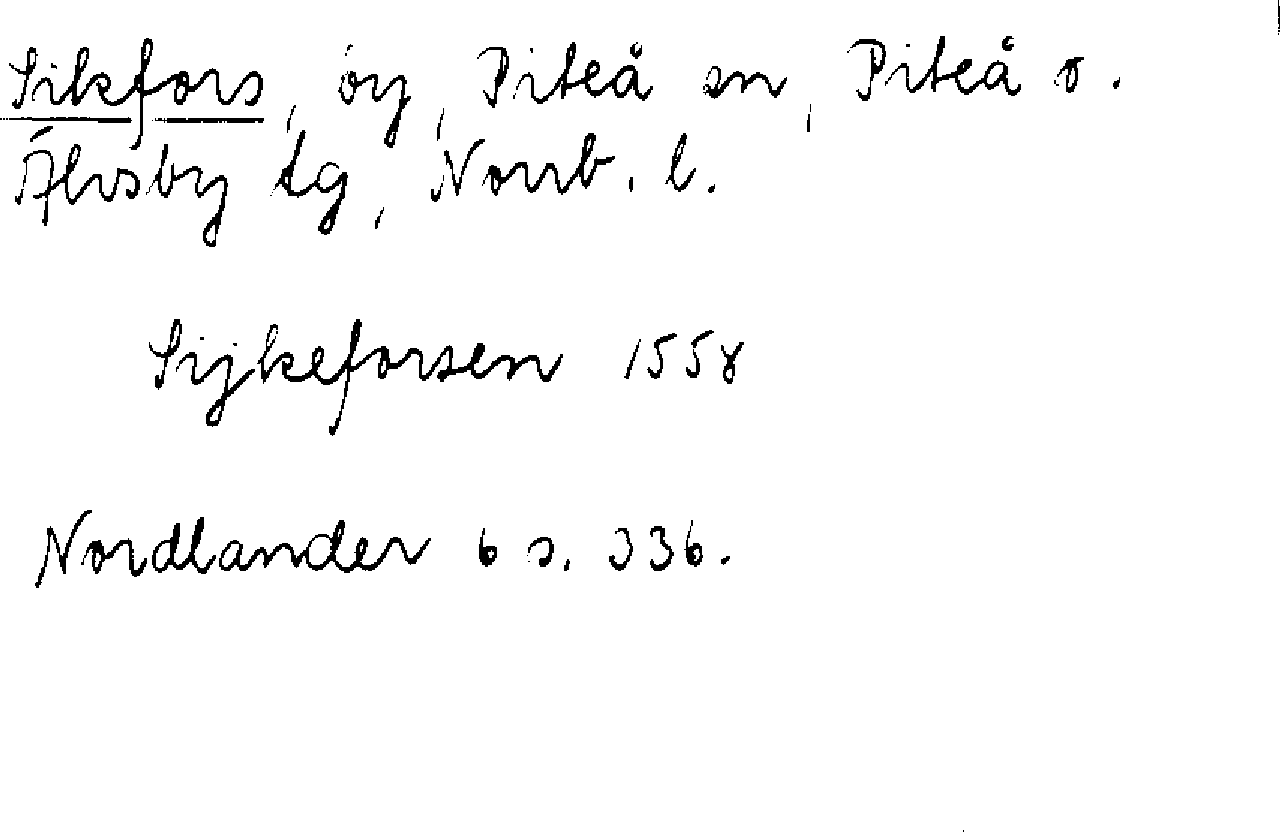 Sikfors, by, Piteå sn, Piteå o.
Älvsby tg, Norrb. l.
Sijkeforsen 1558
Nordlander 6 s. 336.